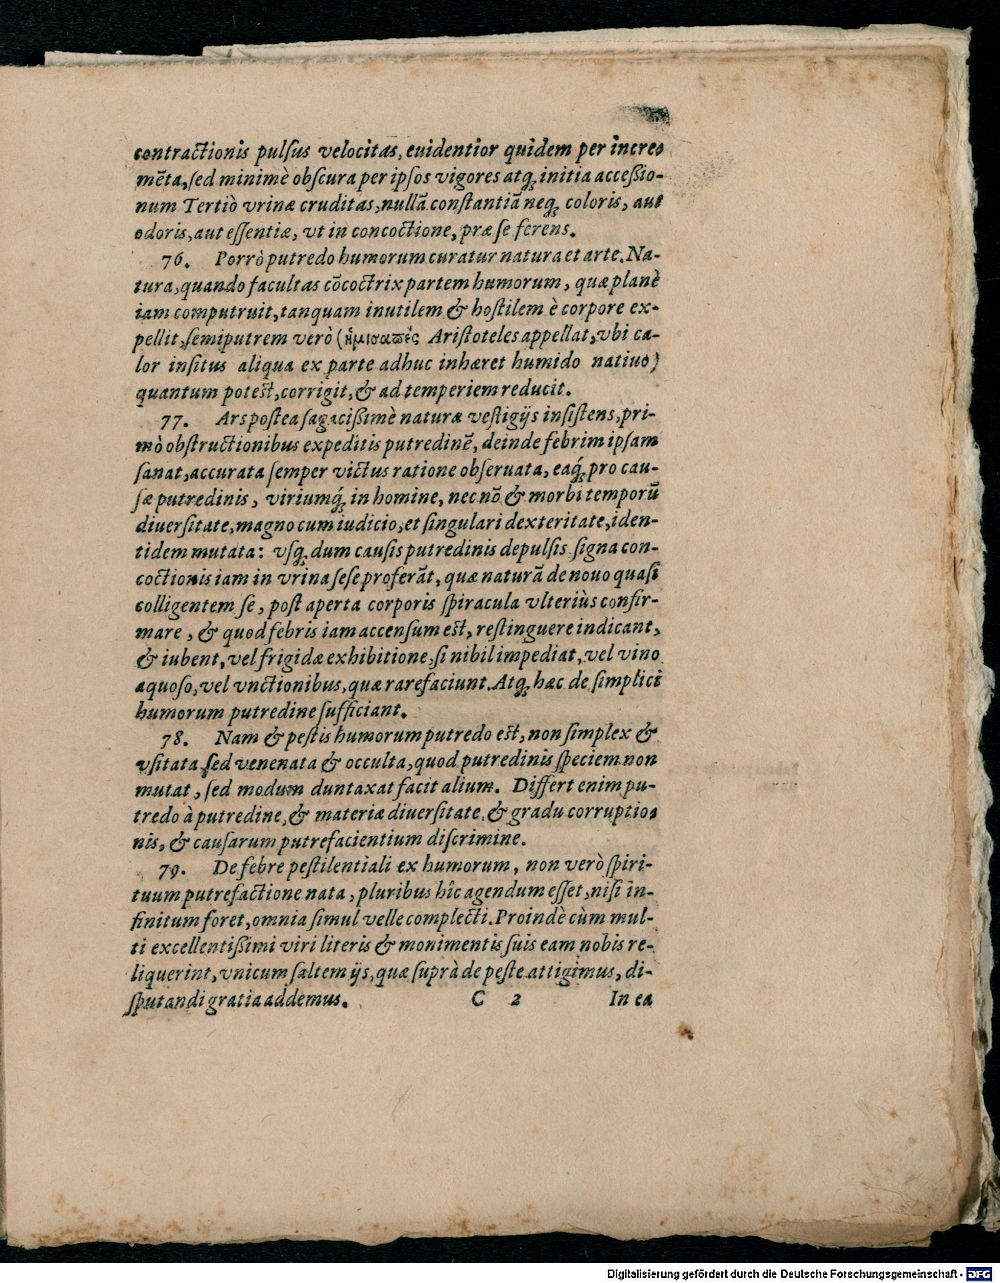 contractionis pulſus velocitas, euidentior quidem per incre⸗
mẽta, ſed minimè obſcura per ipſos vigores atq́; initia acceßio-
num Tertiò vrinæ cruditas, nullã conſtantiã neq́; coloris, aut
odoris, aut eſſentiæ, vt in concoctione, præ ſe ferens.
76. Porrò putredo humorum curatur natura et arte. Na-
tura, quando facultas cõcoctrix partem humorum, quæ planè
iam computruit, tanquam inutilem & hoſtilem è corpore ex-
pellit, ſemiputrem verò (ἡμισαπὲς Ariſtoteles appellat, vbi ca-
lor inſitus aliqua ex parte adhuc inhæret humido natiuo)
quantum poteſt, corrigit, & ad temperiem reducit.
77. Ars poſtea ſagacißimè naturæ veſtigijs inſiſtens, pri-
mò obſtructionibus expeditis putredinẽ, deinde febrim ipſam
ſanat, accurata ſemper victus ratione obſeruata, eaq́; pro cau-
ſæ putredinis, viriumq́; in homine, nec nõ & morbi temporũ
diuerſitate, magno cum iudicio, et ſingulari dexteritate, iden-
tidem mutata: vſq́; dum cauſis putredinis depulſis ſigna con-
coctionis iam in vrina ſeſe proferãt, quæ naturã de nouo quaſi
colligentem ſe, poſt aperta corporis ſpiracula vlteriùs confir-
mare, & quod febris iam accenſum eſt, reſtinguere indicant,
& iubent, vel frigidæ exhibitione, ſi nibil impediat, vel vino
aquoſo, vel vnctionibus, quæ rarefaciunt. Atq́; hæc de ſimplici
humorum putredine ſufficiant.
78. Nam & peſtis humorum putredo eſt, non ſimplex &
vſitata, ſed venenata & occulta, quod putredinis ſpeciem non
mutat, ſed modum duntaxat facit alium. Differt enim pu-
tredo à putredine, & materiæ diuerſitate, & gradu corruptio⸗
nis, & cauſarum putrefacientium diſcrimine.
79. De febre peſtilentiali ex humorum, non verò ſpiri-
tuum putrefactione nata, pluribus hîc agendum eſſet, niſi in-
finitum foret, omnia ſimul velle complecti. Proindè cùm mul-
ti excellentißimi viri literis & monimentis ſuis eam nobis re-
liquerint, vnicum ſaltem ijs, quæ ſuprà de peſte attigimus, di-
ſputandi gratia addemus. C 2 In ea
Digitalisierung gefördert durch die Deutsche Forschungsgemeinschaft - DFG